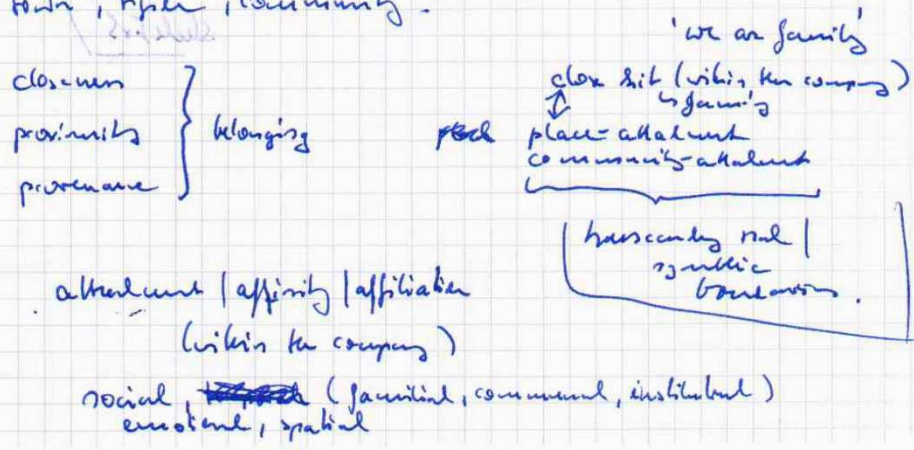 community.
'we are family'
closeness
proximity
provenance
belonging
close knit (within the company)
↳ family
place-attachment
community-attachment
transcending real |
boundaries.
attachment | affinity | affiliation
(within the company)
social, (familial, communal, institutional)
emotional, spatial